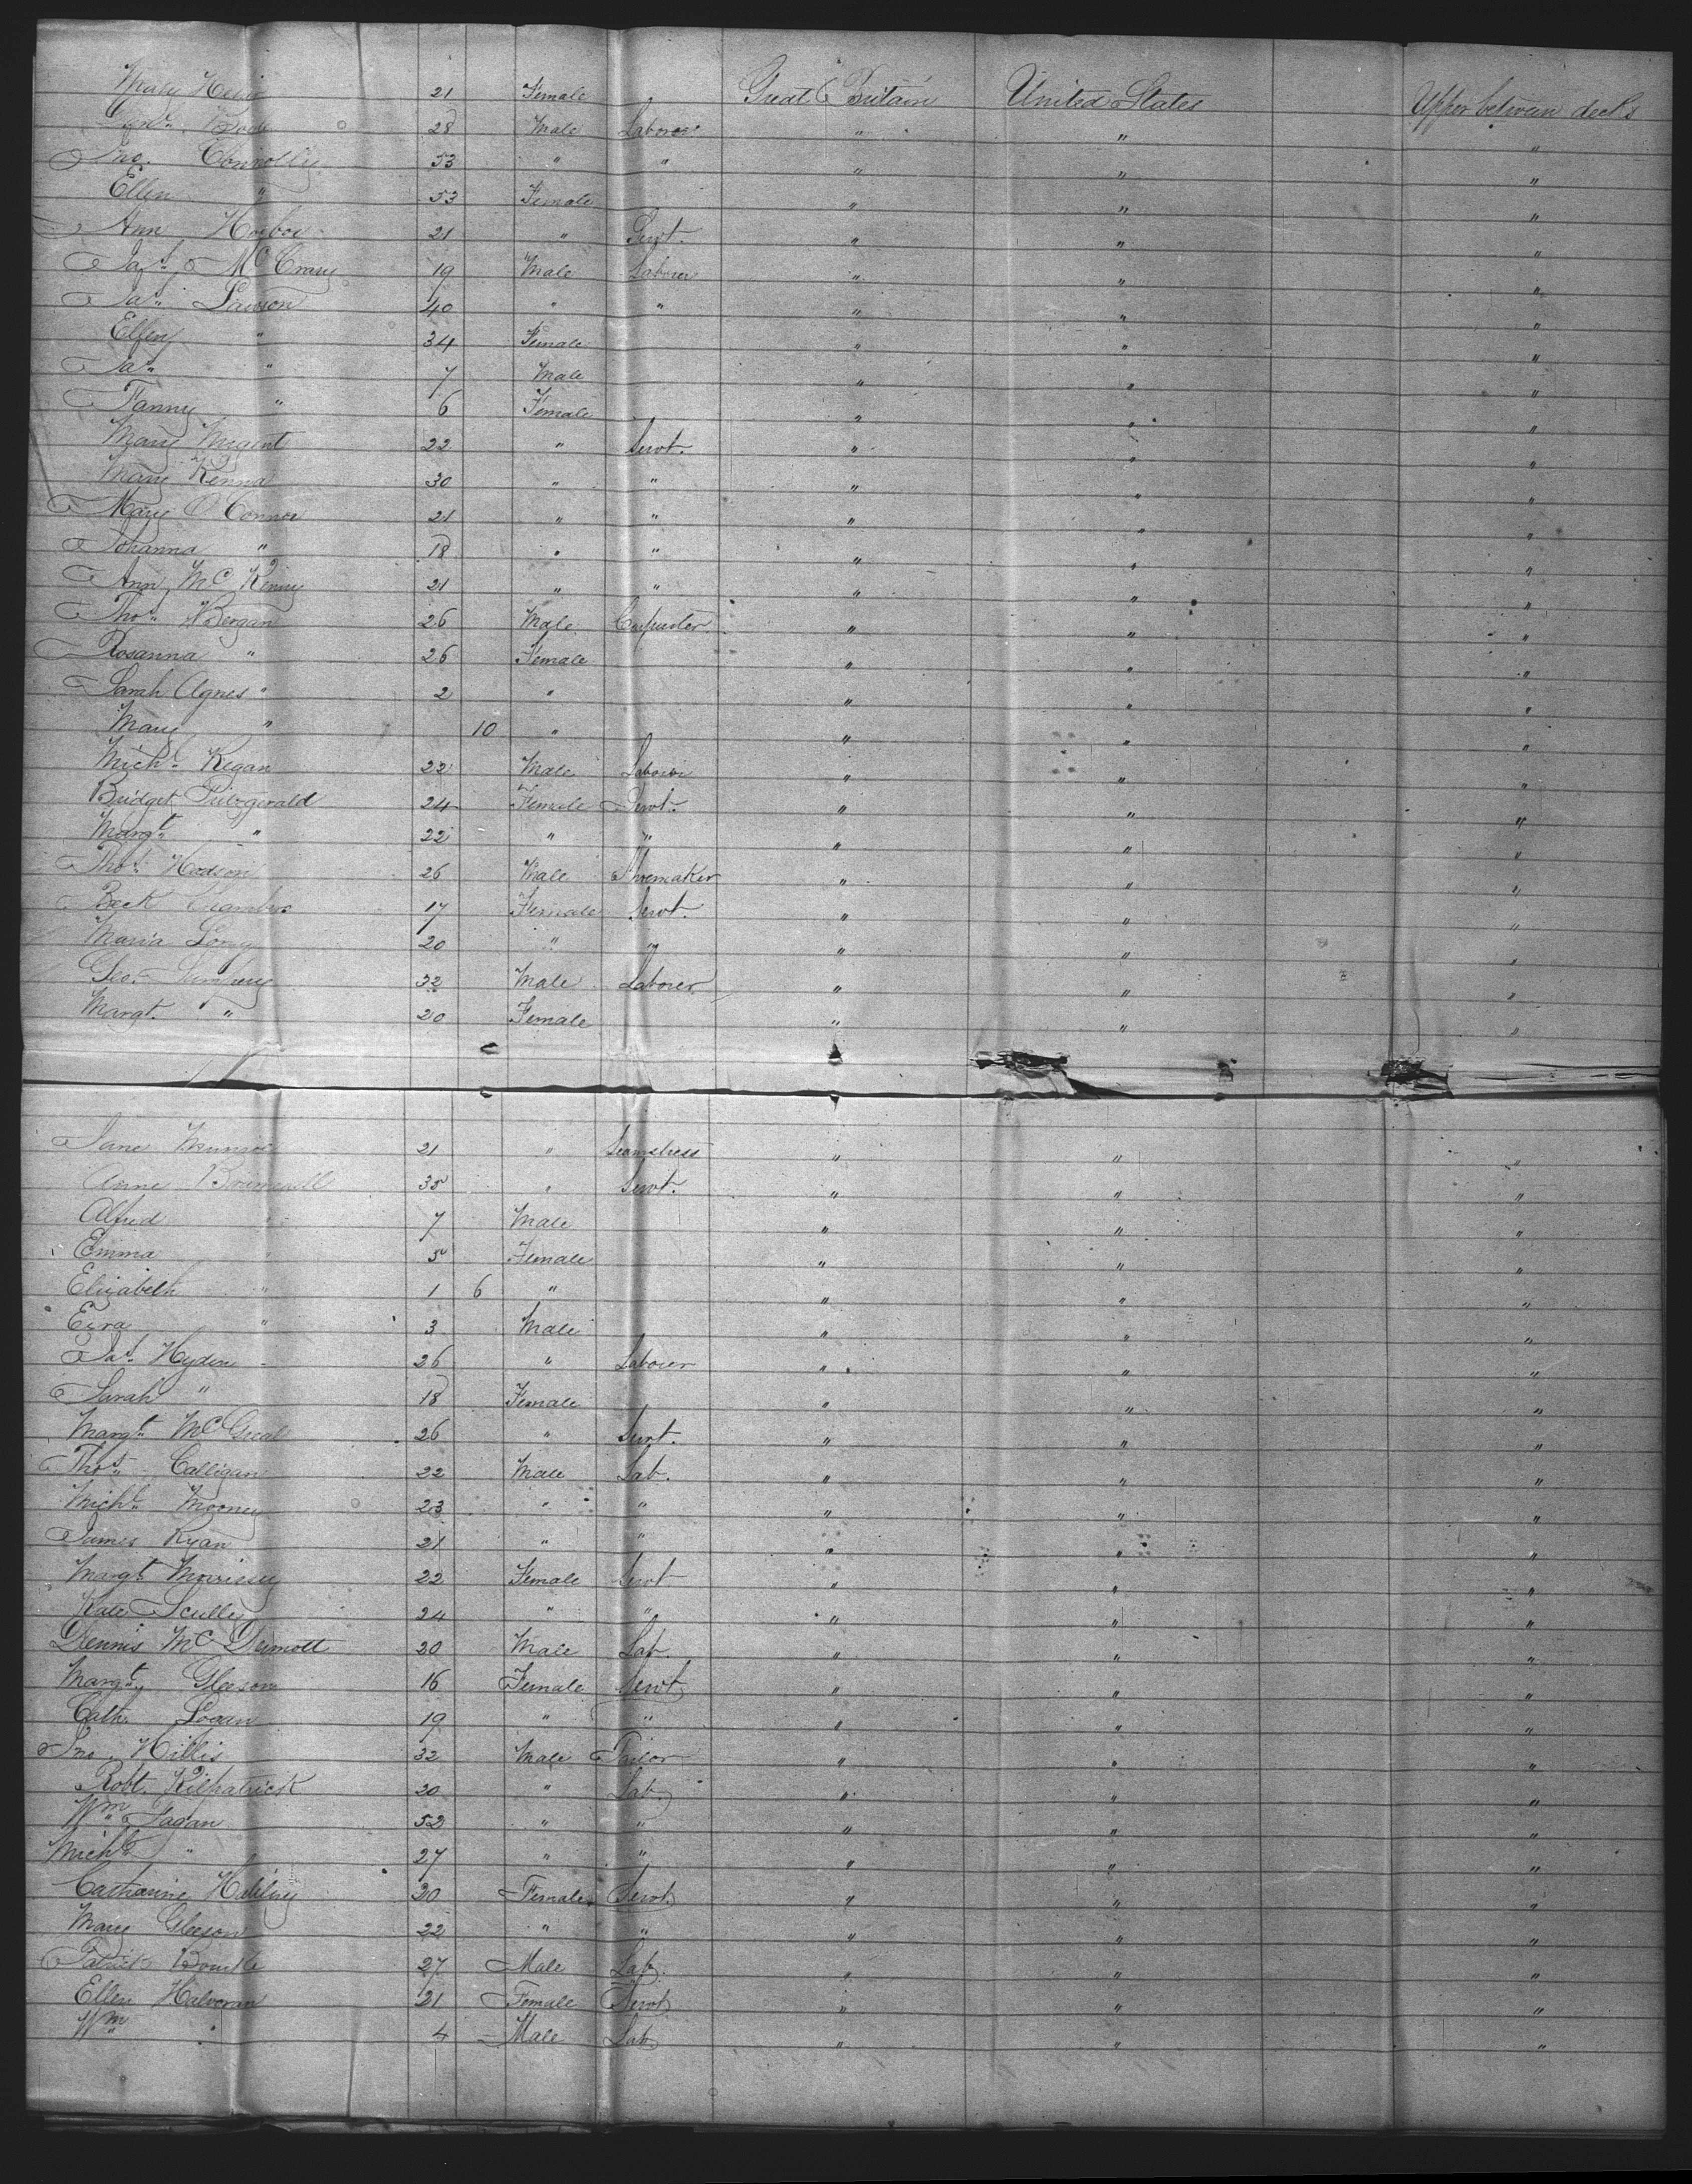 Mary 21 Female Great Britain United States Upper between decks
28 Male Laborer " " "
Jno. Connolly 53 " " " " "
Ellen " 53 Female " " "
Ann 21 " Servt. " " "
Jas. McCrary 19 Male Laborer " " "
Jas. Lawson 40 " " " " "
Ellen " 34 Female " " "
Jas. " 7 Male " " "
Fanny " 6 Female " " "
Mary Nugent 22 " Servt. " " "
Mary Kenna 30 " " " " "
Mary O'Connor 21 " " " " "
Johanna " 18 " " " " "
Ann McKenny 21 " " " " "
Thos. Bergan 26 Male Carpenter " " "
Rosanna " 26 Female " " "
Sarah Agnes " 2 " " " "
Mary " 10 " " " "
Michl. Kegan 22 Male Laborer " " "
Bridget 24 Female Servt. " " "
Margt. " 22 " " " " "
Thos. Hodson 26 Male Shoemaker " " "
Beck 17 Female Servt. " " "
Maria 20 " " " " "
Geo. 32 Male Laborer " " "
Margt. " 20 Female " " "
Jane 21 " Seamstress " " "
Anne 35 " Servt. " " "
Alfred " 7 Male " " "
Emma " 5 Female " " "
Elizabeth " 1 6 " " " "
Ezra " 3 Male " " "
Jas. Hyden 26 " Laborer " " "
Sarah " 18 Female " " "
Margt. 26 " Servt. " " "
Thos. Calligan 22 Male Lab. " " "
Michl. Mooney 23 " " " " "
James Ryan 21 " " " " "
Margt Morrissey 22 Female Servt " " "
Kate Scully 24 " " " " "
Dennis McDermott 20 Male Lab. " " "
Margt. Gleeson 16 Female Servt " " "
Cath. Logan 19 " " " " "
Jno. Hillis 32 Male Tailor " " "
Robt. Kilpatrick 20 " Lab. " " "
Wm. Fagan 52 " " " " "
Michl. " 27 " " " " "
Catharine 30 Female Servt. " " "
Mary Gleeson 22 " " " " "
Patrick Bourke 27 Male Lab. " " "
Ellen Halvoran 21 Female Servt. " " "
Wm. " 4 Male Lab " " "